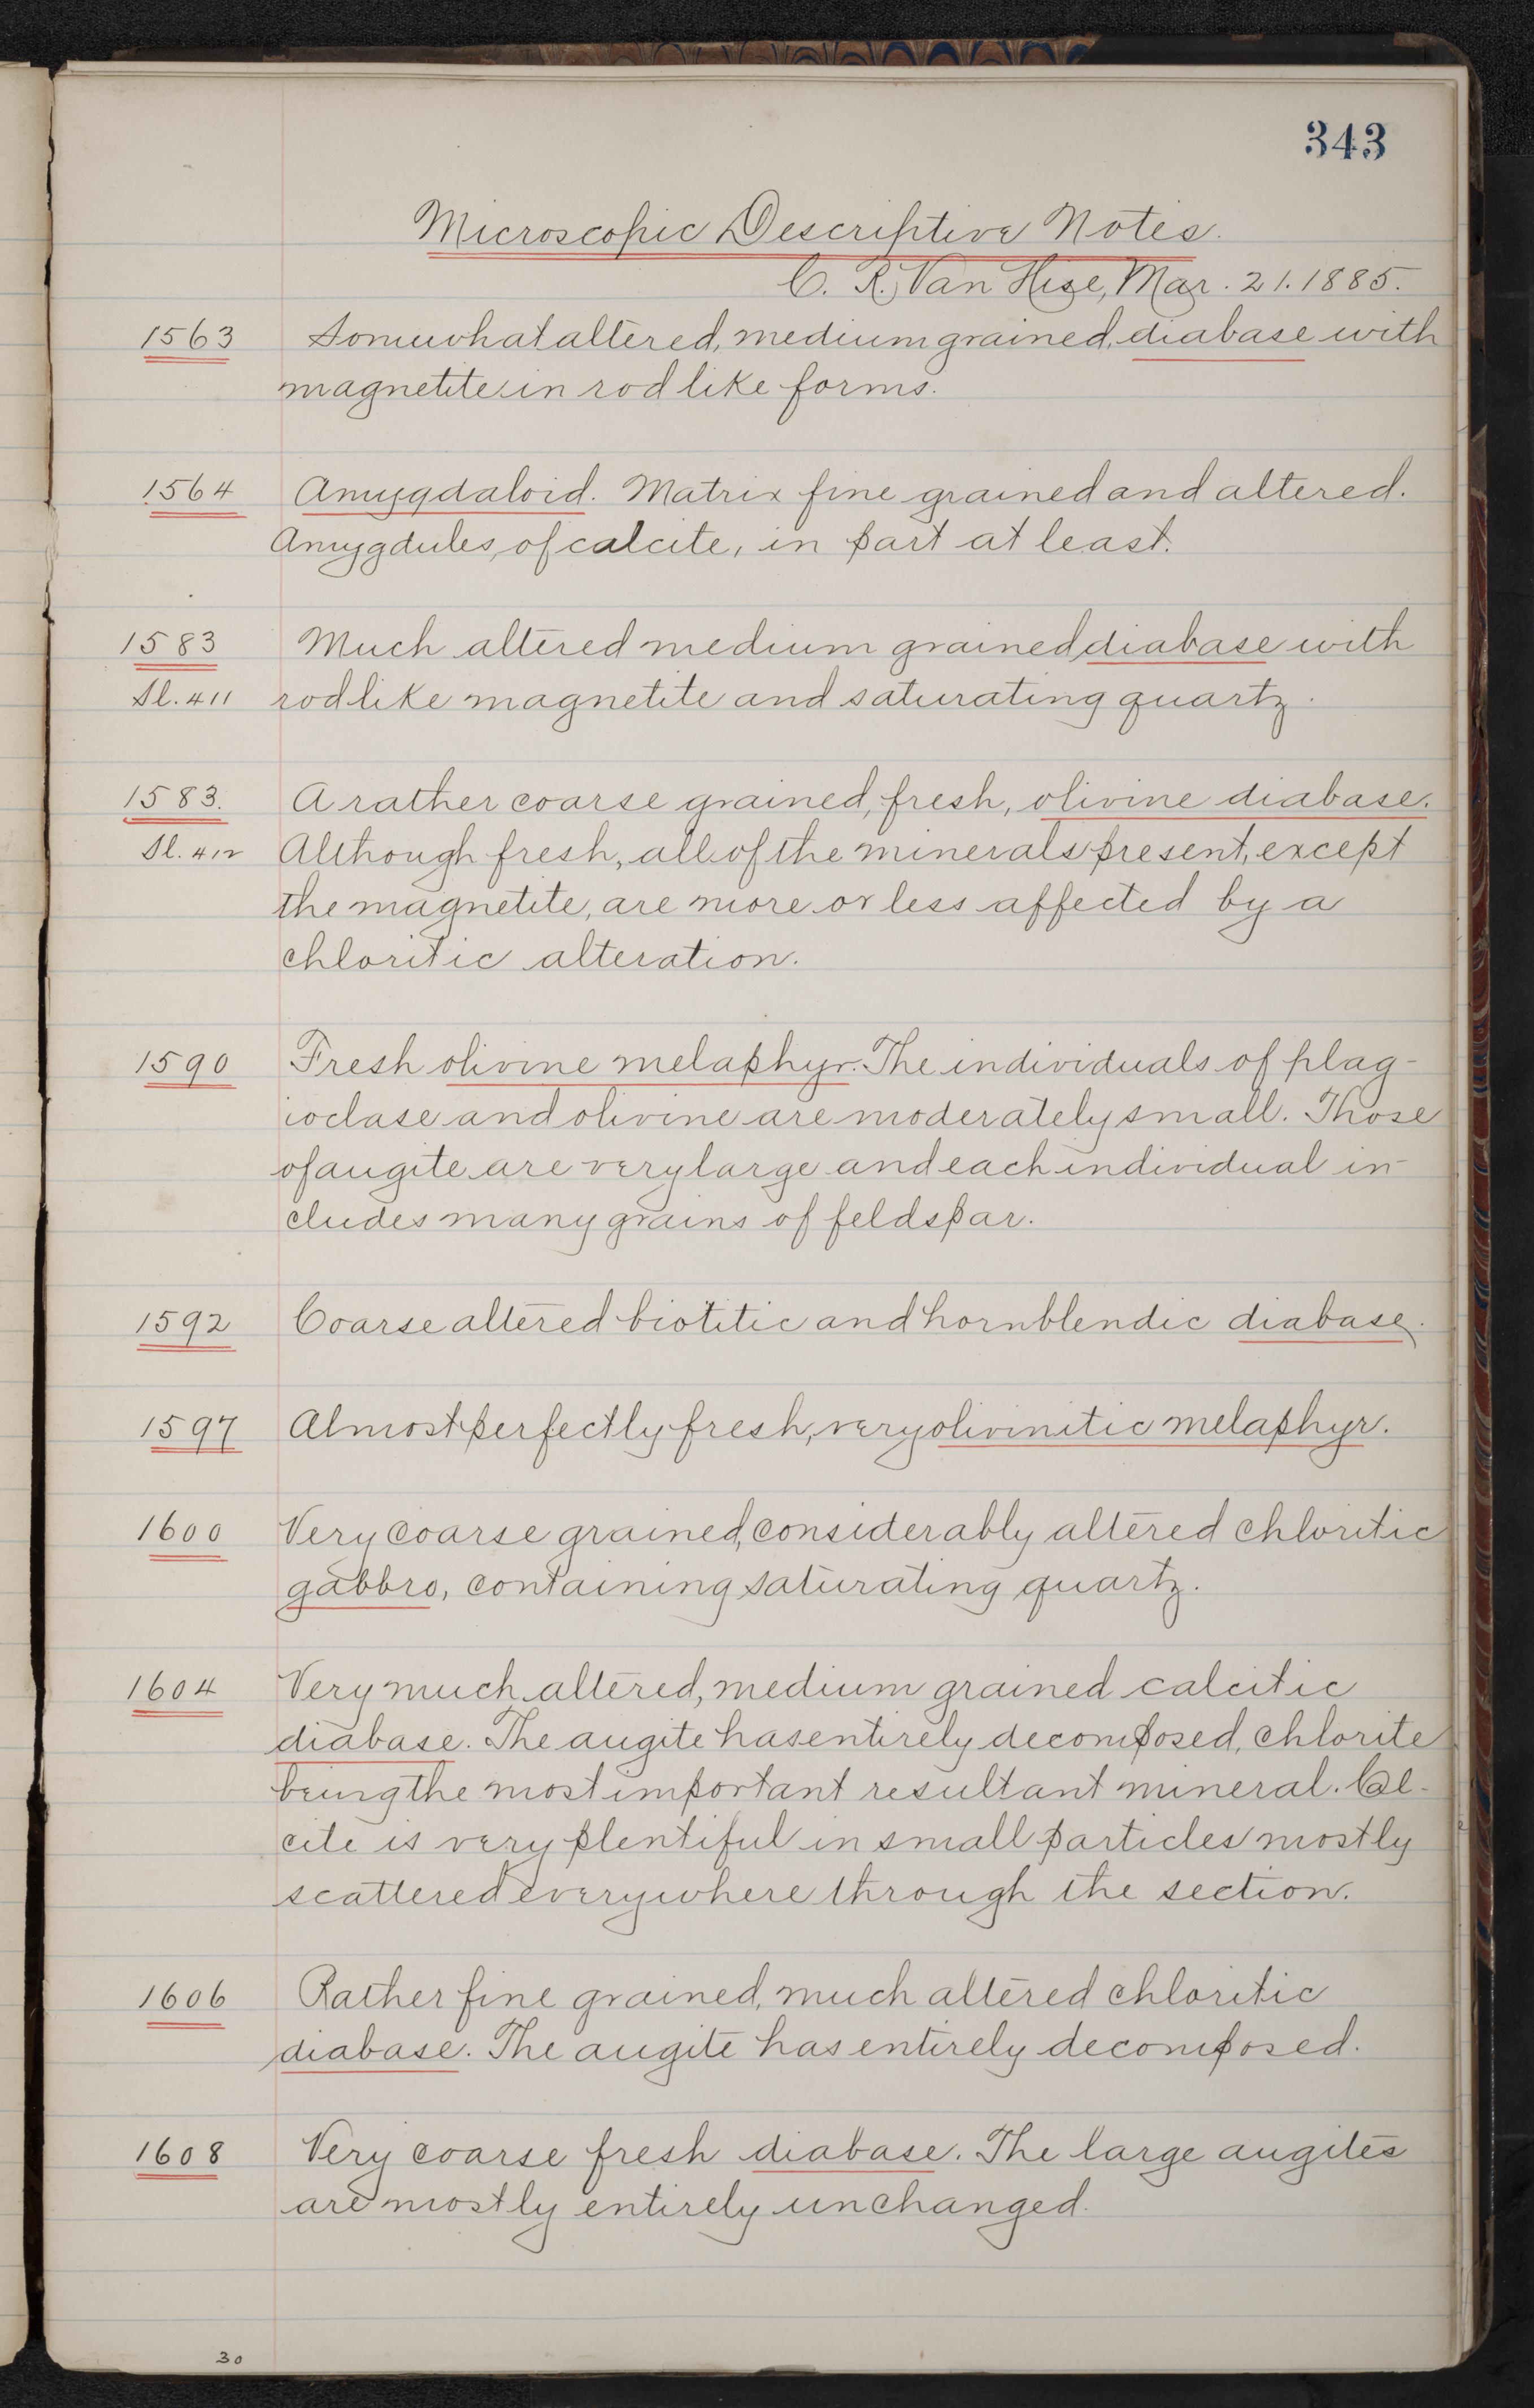 343
Microscopic Descriptive Notes.
C. R. Van Hise, Mar. 21. 1885.
1563 Somewhat altered, medium grained, diabase with
magnetite in rod like forms.
1564 Amygdaloid. Matrix fine grained and altered.
Amygdules, of calcite, in part at least.
1583 Much altered medium grained diabase with
Sl. 411 rodlike magnetite and saturating quartz.
1583. A rather coarse grained, fresh, olivine diabase.
Sl. 412 Although fresh, all of the minerals present, except
the magnetite, are more or less affected by a
chloritic alteration.
1590 Fresh olivine melaphyr. The individuals of plag-
ioclase and olivine are moderately small. Those
of augite are very large and each individual in-
cludes many grains of feldspar.
1592 Coarse altered biotitic and hornblendic diabase.
1597 Almost perfectly fresh, very olivinitic melaphyr.
1600 Very coarse grained, considerably altered chloritic
gabbro, containing saturating quartz.
1604 Very much altered, medium grained calcitic
diabase. The augite has entirely decomposed, chlorite
being the most important resultant mineral. Cal-
cite is very plentiful in small particles mostly
scattered everywhere through the section.
1606 Rather fine grained, much altered chloritic
diabase. The augite has entirely decomposed.
1608 Very coarse fresh diabase. The large augites
are mostly entirely unchanged.
30